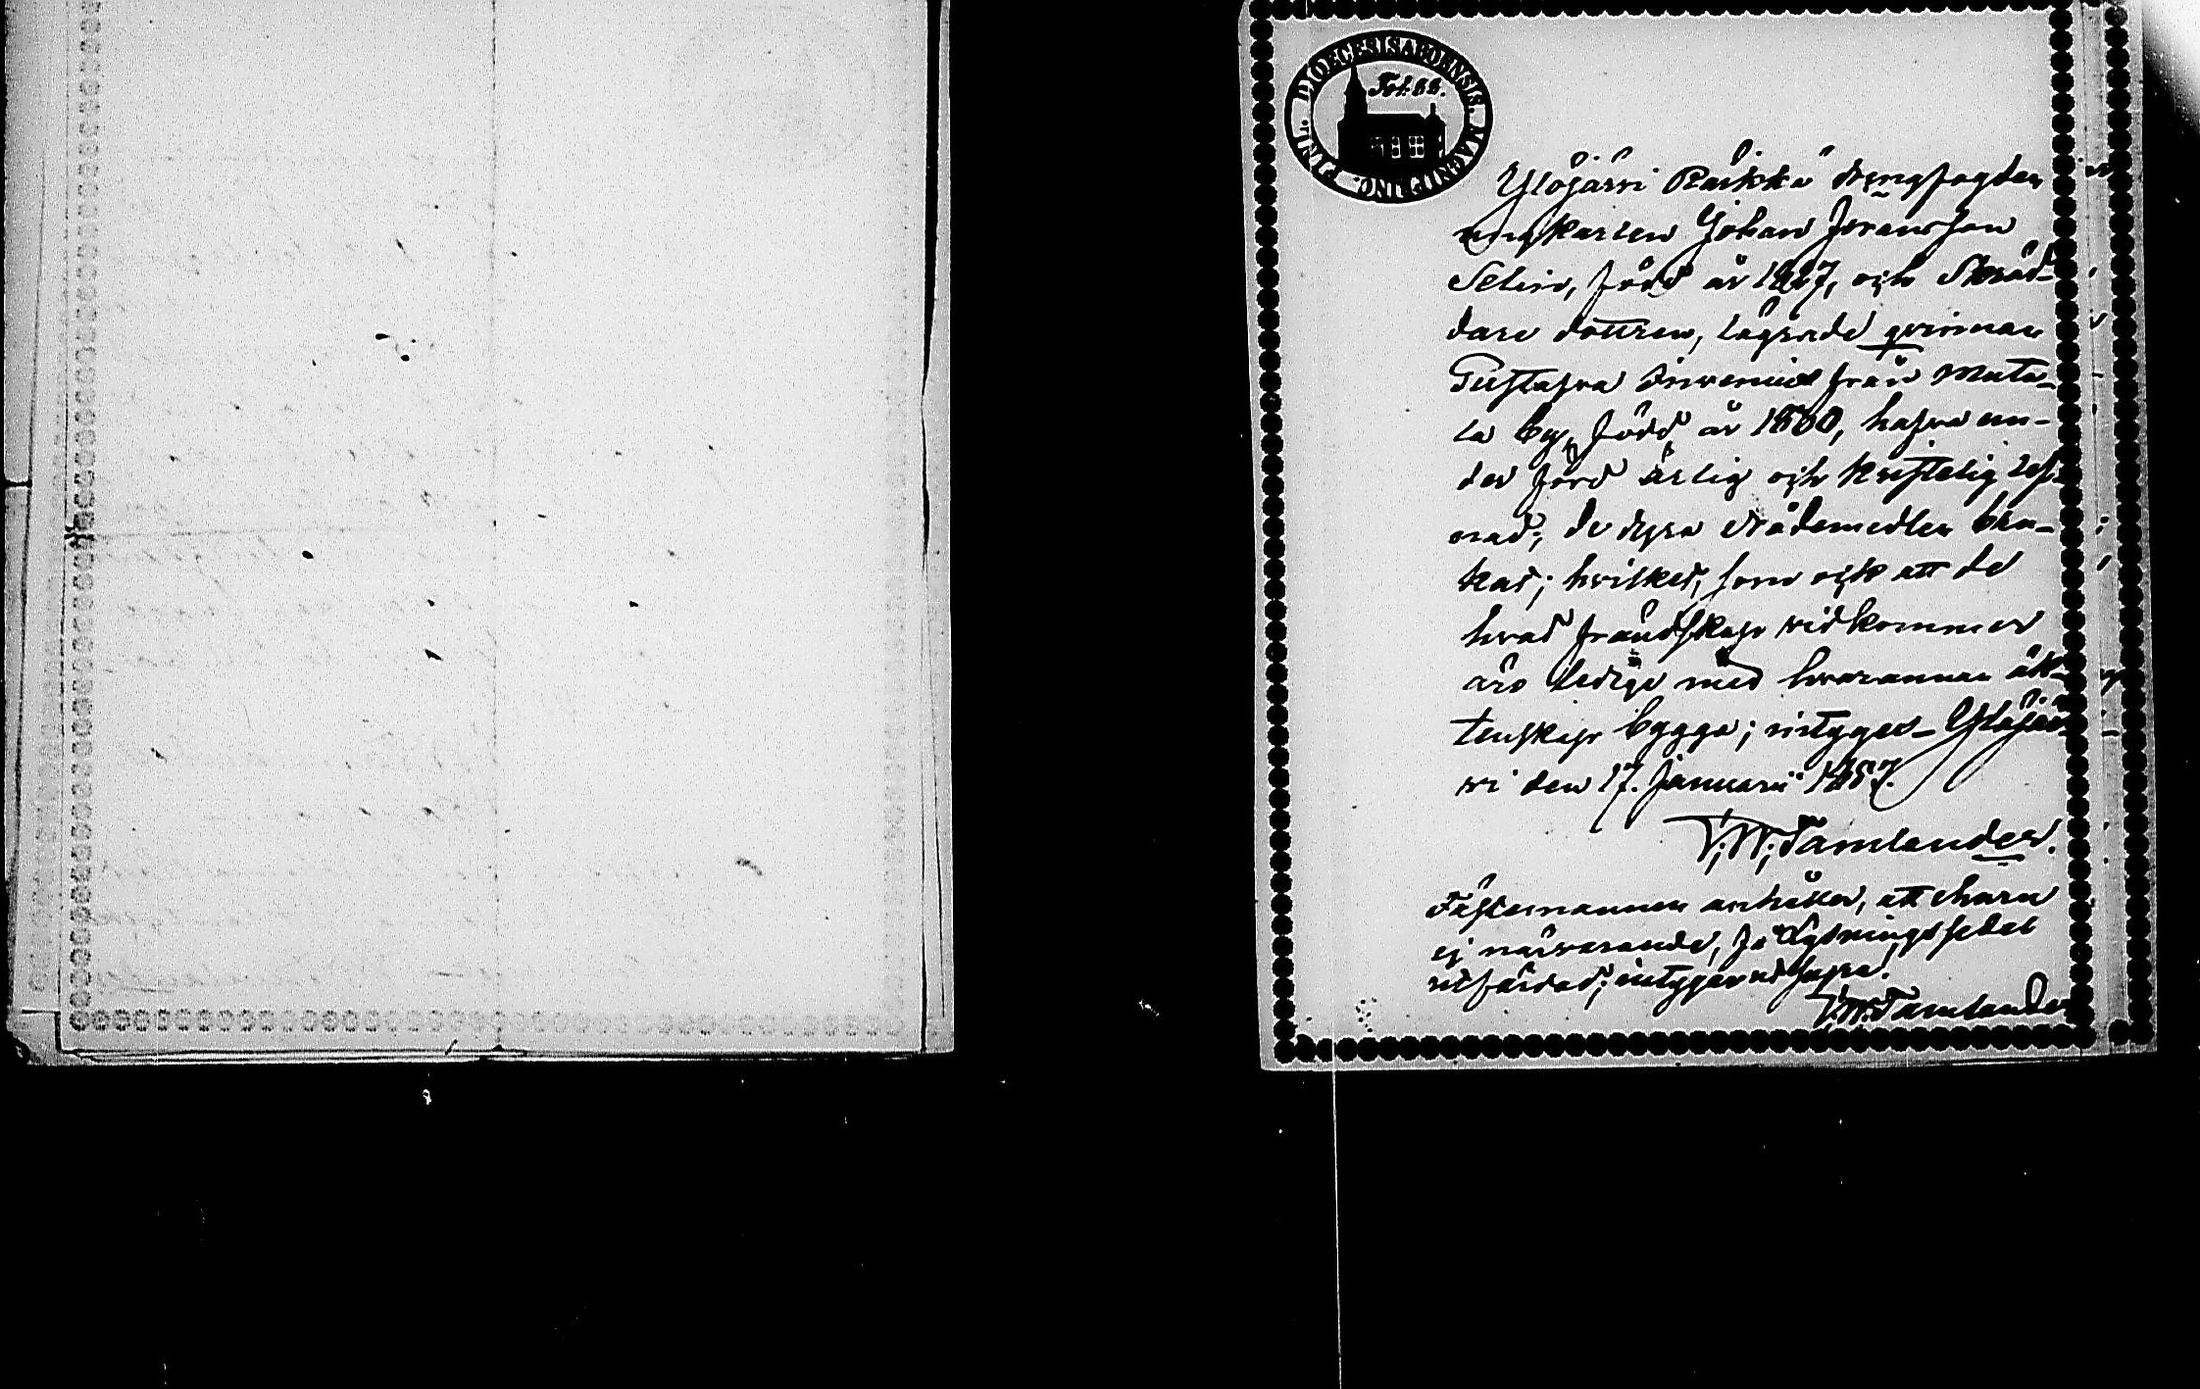 DIOECESIS ABOENSIS. MAGNI PRINC. FINL.
Fol. 88.
Ylöjärvi Räikkä drengfogden
ungkarlen Johan Jeransson
Selin, född år 1827, och Skräd-
dare dottren, lägrade qvinnan
Gustafva från Mata-
la by, född år 1830, hafva un-
der förd ärlig och kristelig lef-
nad, de dyra Nådemedlen bru-
kat; hvilket, som ock att de
hvad frändskap vidkommer
äro ledige med hvarannan äk-
tenskap bygga; intyger_ Ylöjär-
vi den 17. Januarii 1857.
V. W. Tamlander.
Fästemannen anhåller, att ehuru
ej närvarande, få Lysningssedel
utfärdad; intygar ut supra.
V. W. Tamlander